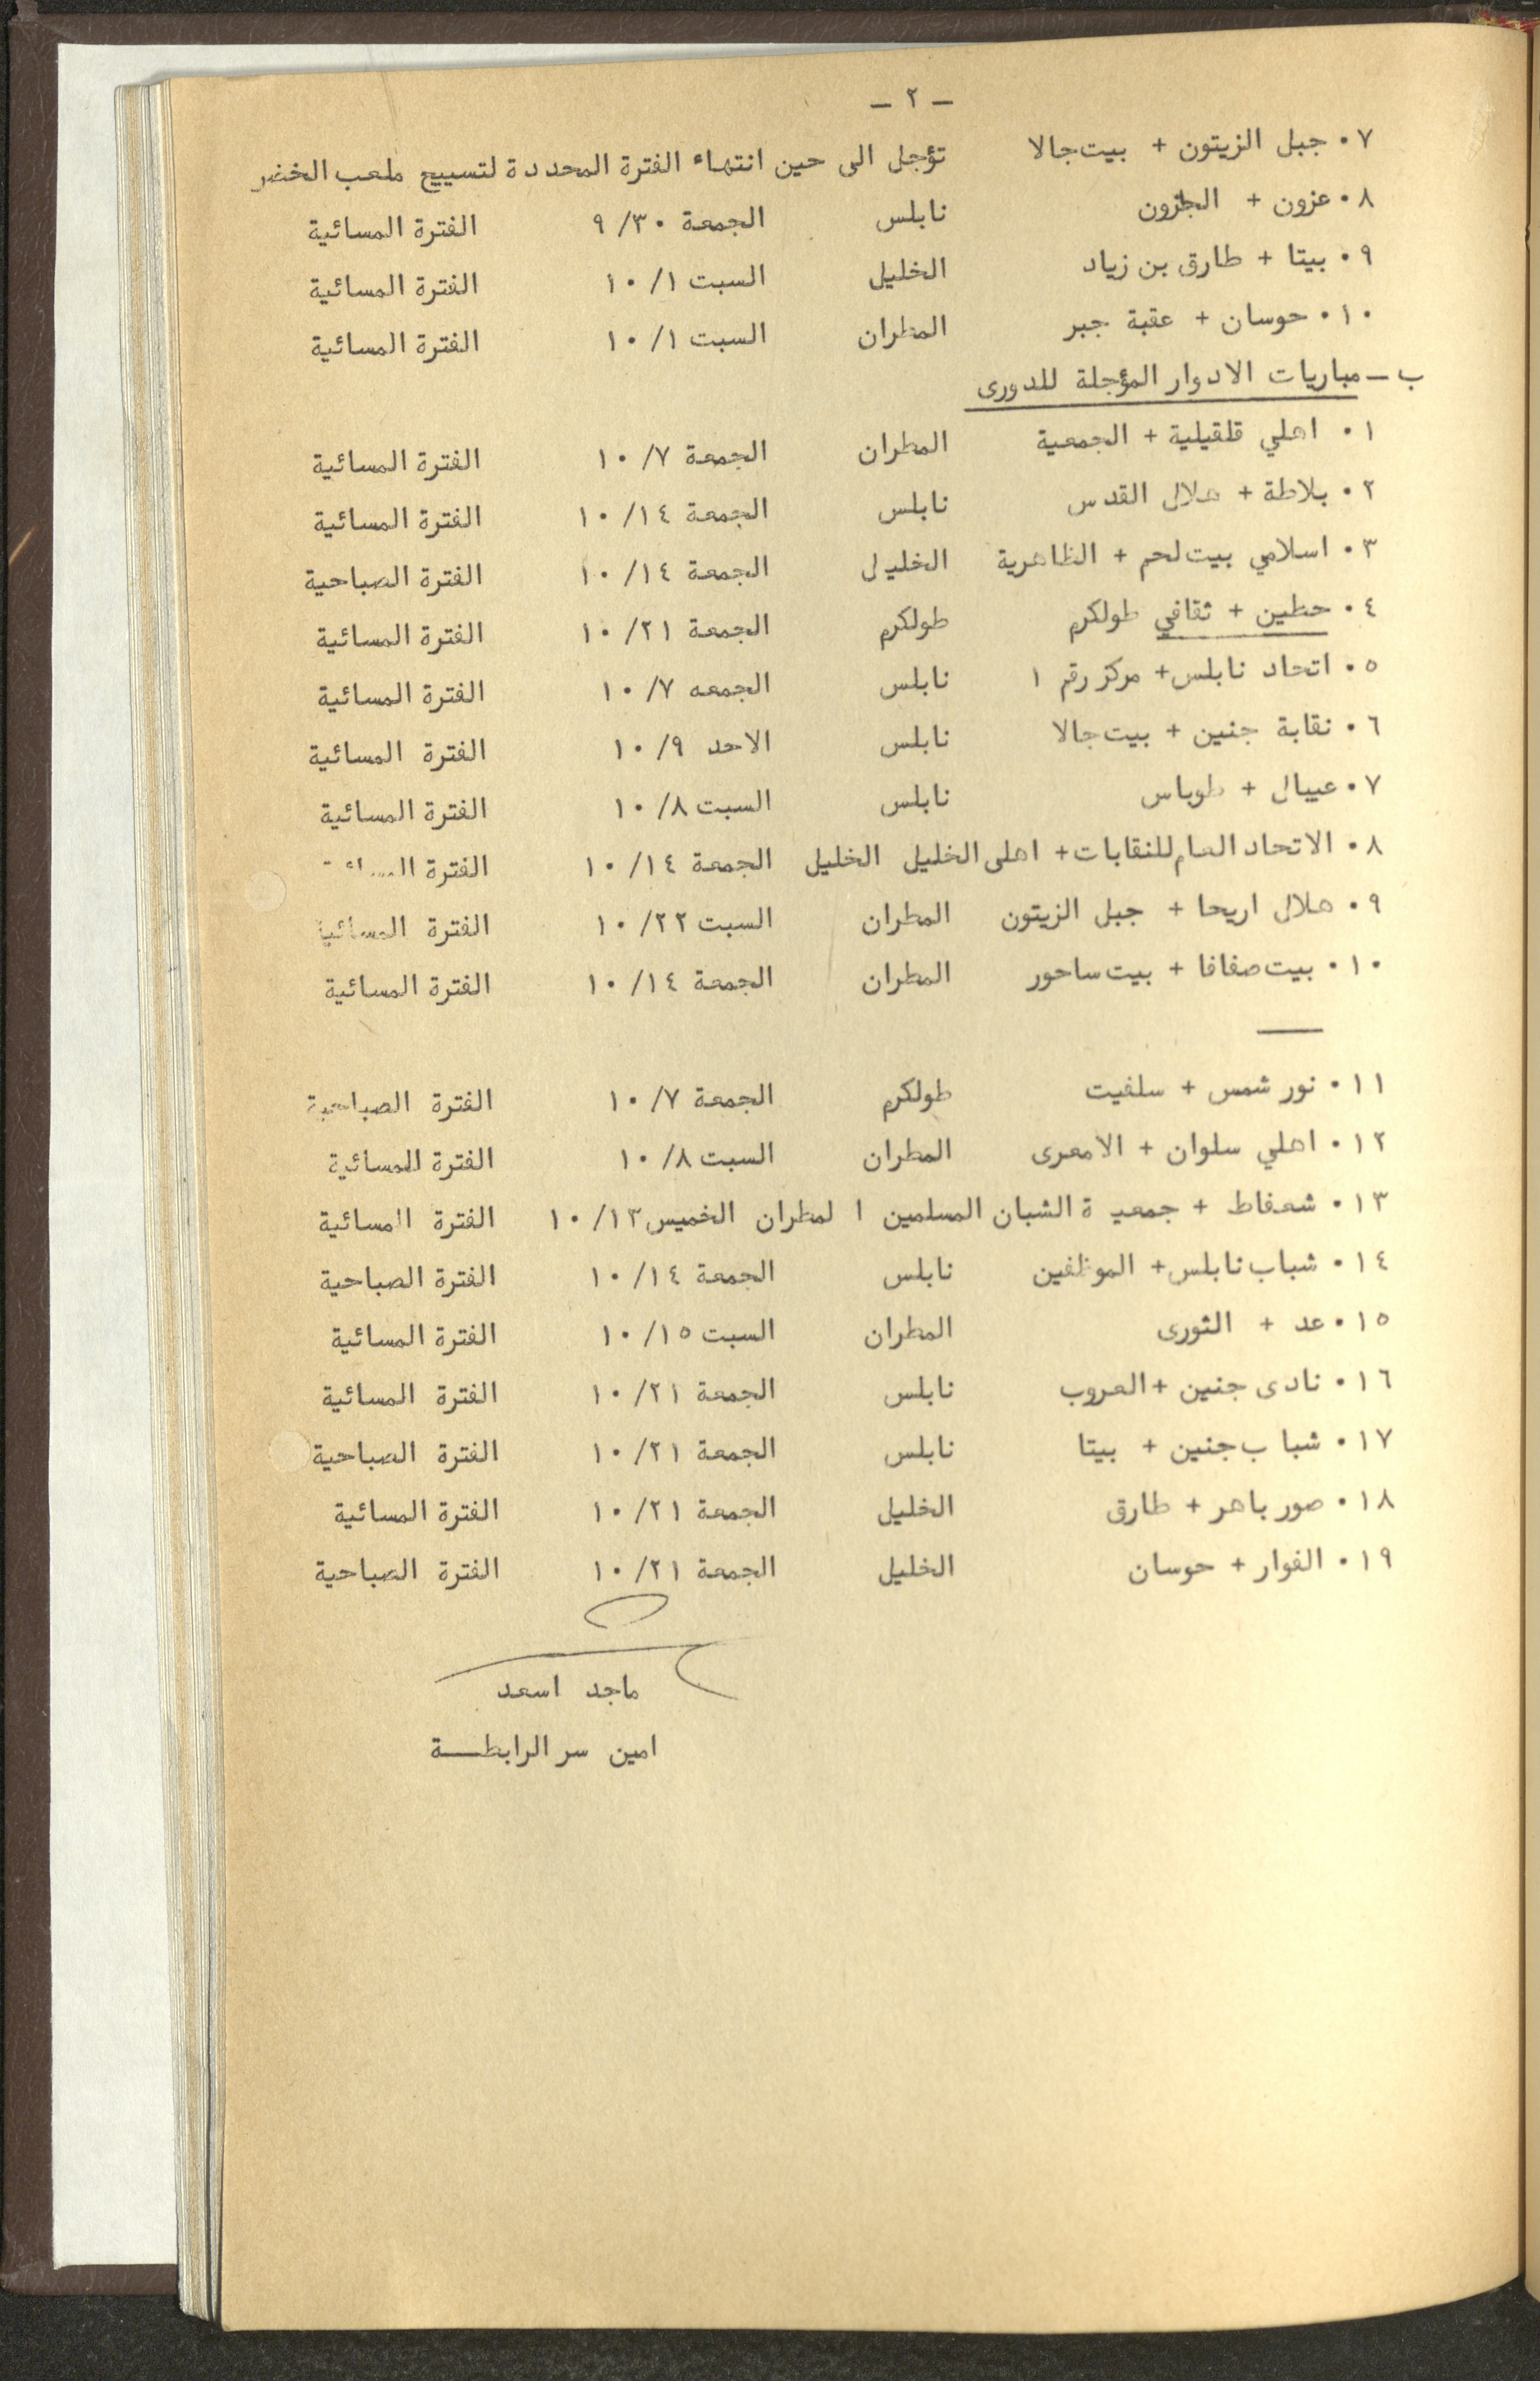 - ٢ -
٧٠ جبل الزيتون + بيت جالا تؤجل الى حين انتهاء الفترة المحددة لتسييج ملعب الخضر
٨٠ عزون + الجلزون نابلس الجمعة ٩/٣٠ الفترة المسائية
٩٠ بيتا + طارق بن زياد الخليل السبت ١٠/١ الفترة المسائية
١٠٠ حوسان + عقبة جبر المطران السبت ١٠/١ الفترة المسائية
ب - مباريات الادوار المؤجلة للدورى
١٠ اهلي قلقيلية + الجمعية المطران الجمعة ١٠/٧ الفترة المسائية
٢٠ بلاطة + هلال القدس نابلس الجمعة ١٠/١٤ الفترة المسائية
٣٠ اسلامي بيت لحم + الظاهرية الخليل الجمعة ١٠/١٤ الفترة الصباحية
٤٠ حطين + ثقافي طولكرم طولكرم الجمعة ١٠/٢١ الفترة المسائية
٥٠ اتحاد نابلس + مركز رقم ١ نابلس الجمعه ١٠/٧ الفترة المسائية
٦٠ نقابة جنين + بيت جالا نابلس الاحد ١٠/٩ الفترة المسائية
٧٠ عيبال + طوباس نابلس السبت ١٠/٨ الفترة المسائية
٨٠ الاتحاد العام للنقابات + اهلى الخليل الخليل الجمعة ١٠/١٤ الفترة
٩٠ هلال اريحا + جبل الزيتون المطران السبت ١٠/٢٢ الفترة المسائية
١٠٠ بيت صفافا + بيت ساحور المطران الجمعة ١٠/١٤ الفترة المسائية
١١٠ نور شمس + سلفيت طولكرم الجمعة ١٠/٧ الفترة الصباحية
١٢٠ اهلي سلوان + الامعرى المطران السبت ١٠/٨ الفترة المسائية
١٣٠ شعفاط + جمعية الشبان المسلمين المطران الخميس ١٠/١٣ الفترة المسائية
١٤٠ شباب نابلس + الموظفين نابلس الجمعة ١٠/١٤ الفترة الصباحية
١٥٠ عد + الثورى المطران السبت ١٠/١٥ الفترة المسائية
١٦٠ نادى جنين + العروب نابلس الجمعة ١٠/٢١ الفترة المسائية
١٧٠ شباب جنين + بيتا نابلس الجمعة ١٠/٢١ الفترة الصباحية
١٨٠ صور باهر + طارق الخليل الجمعة ١٠/٢١ الفترة المسائية
١٩٠ الفوار + حوسان الخليل الجمعة ١٠/٢١ الفترة الصباحية
ماجد اسعد
امين سر الرابطـــة